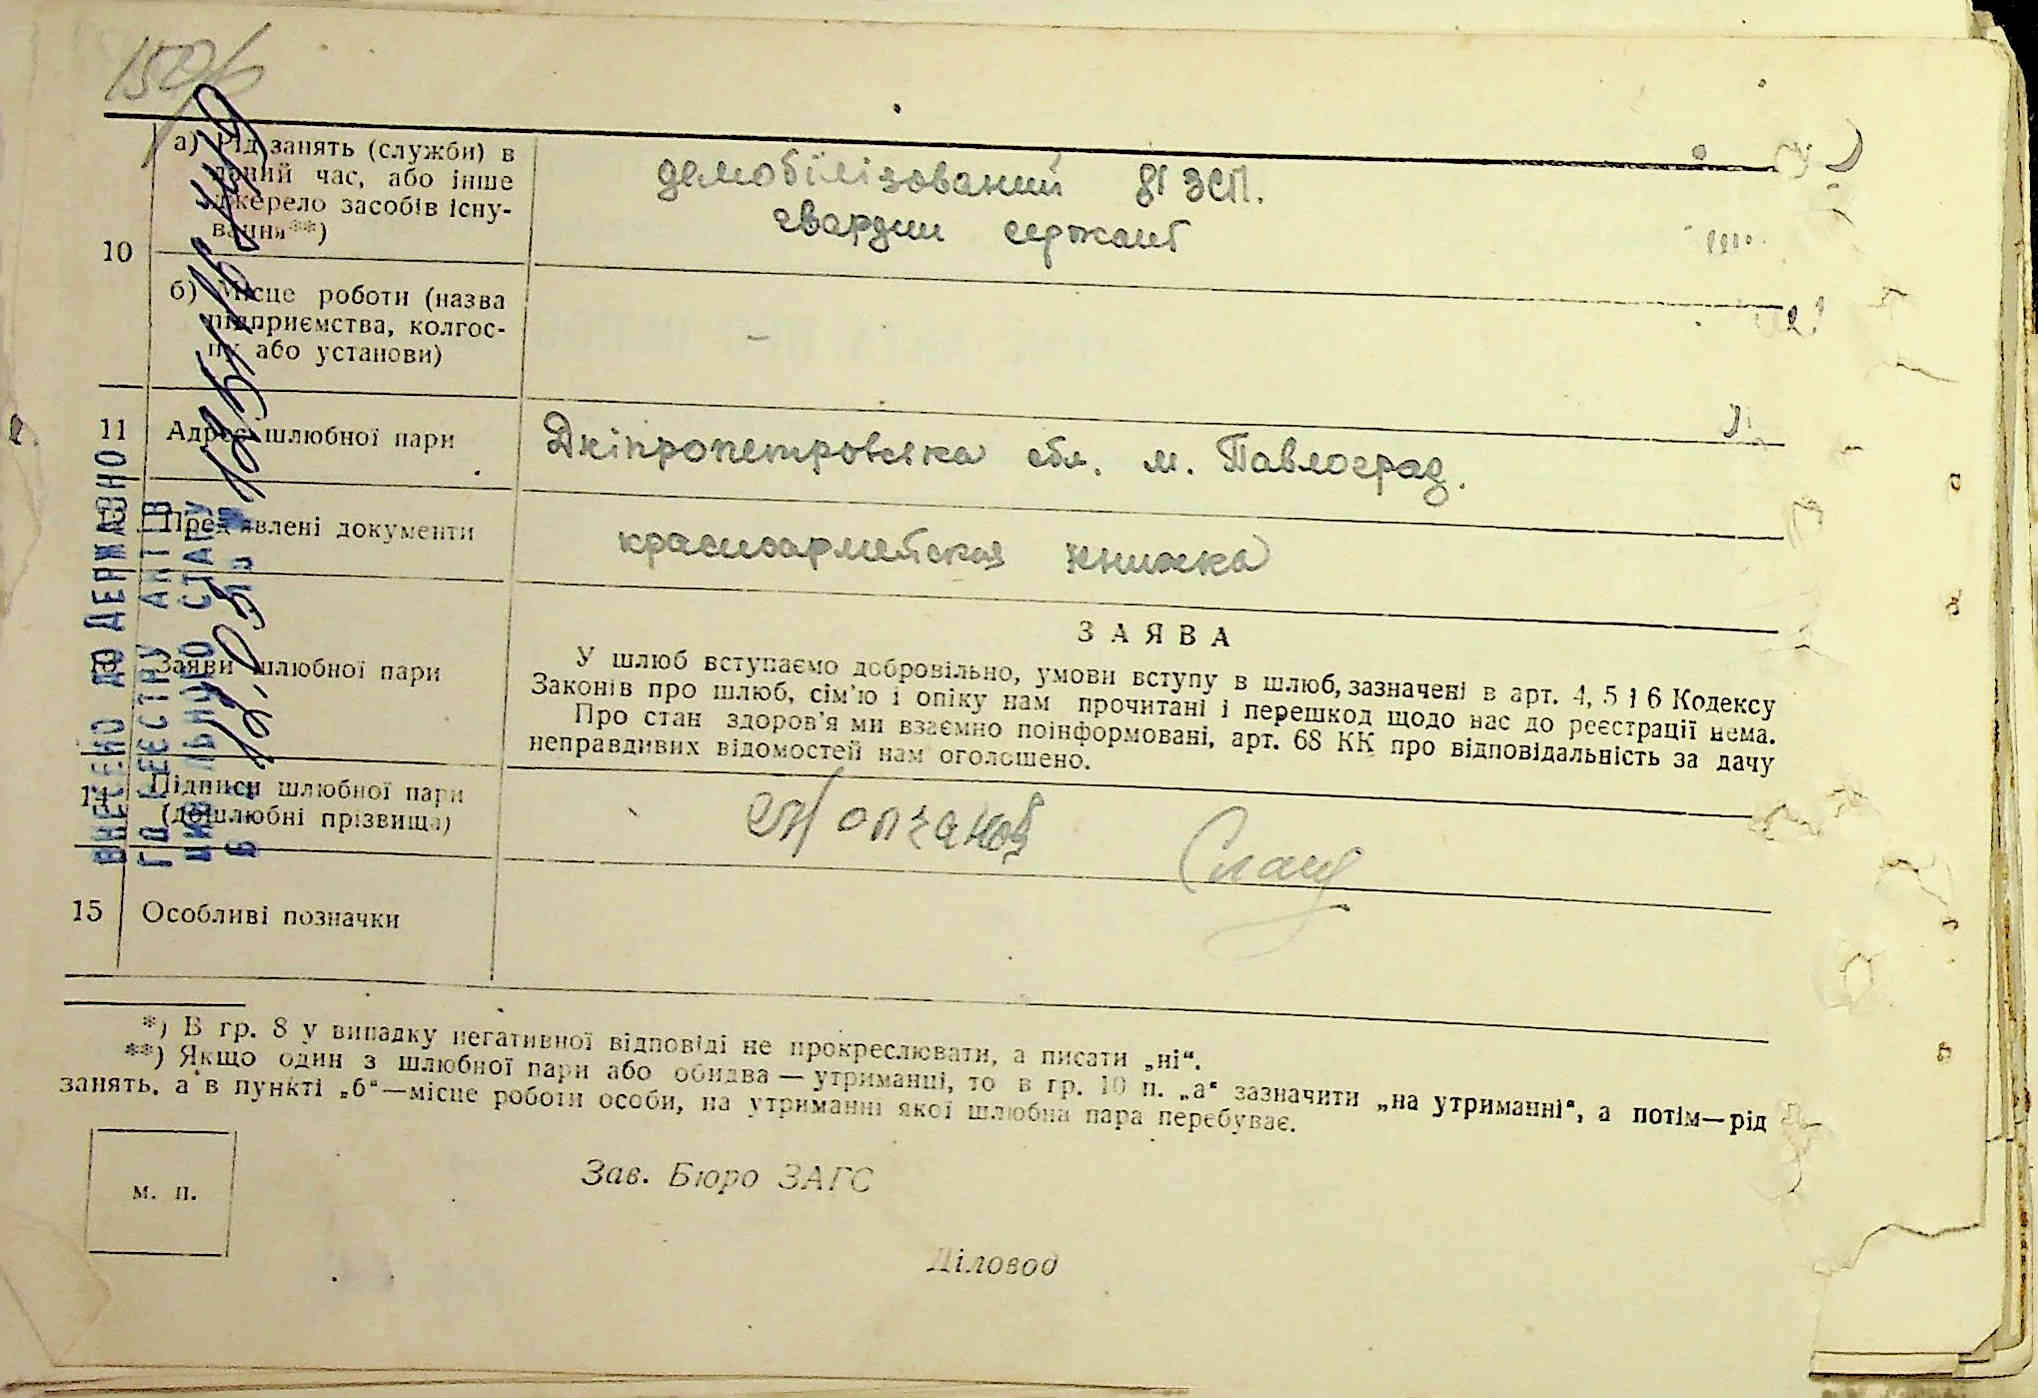 а) Рід занять (служби) в
даний час, або інше
джерело засобів існу-
вання**)
демобілізований 81 ЗСП.
гвардии сержант
10
б) Місце роботи (назва
підприємства, колгос-
пу або установи)
–
11 Адреса шлюбної пари
Дніпропетровська обл. м. Павлоград.
12 Пред'явлені документи
красноармейская книжка
13 Заяви шлюбної пари
ЗАЯВА
У шлюб вступаємо добровільно, умови вступу в шлюб, зазначені в арт. 4, 5 і 6 Кодексу
Законів про шлюб, сім'ю і опіку нам прочитані і перешкод щодо нас до реєстрації нема.
Про стан здоров'я ми взаємно поінформовані, арт. 68 КК про відповідальність за дачу
неправдивих відомостей нам оголошено.
14 Підписи шлюбної пари
(дошлюбні прізвища)
15 Особливі позначки
*) В гр. 8 у випадку негативної відповіді не прокреслювати, а писати „ні“.
**) Якщо один з шлюбної пари або обидва — утриманці, то в гр. 10 п. „а“ зазначити „на утриманні“, а потім—рід
занять, а в пункті „б“—місце роботи особи, на утриманні якої шлюбна пара перебуває.
м. п.
Зав. Бюро ЗАГС
Діловод
ВНЕСЕНО ДО ДЕРЖАВНО
ГО РЕЄСТРУ АКТІВ
ЦИВІЛЬНОГО СТАНУ